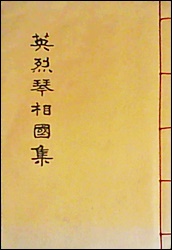 英烈琴相國集